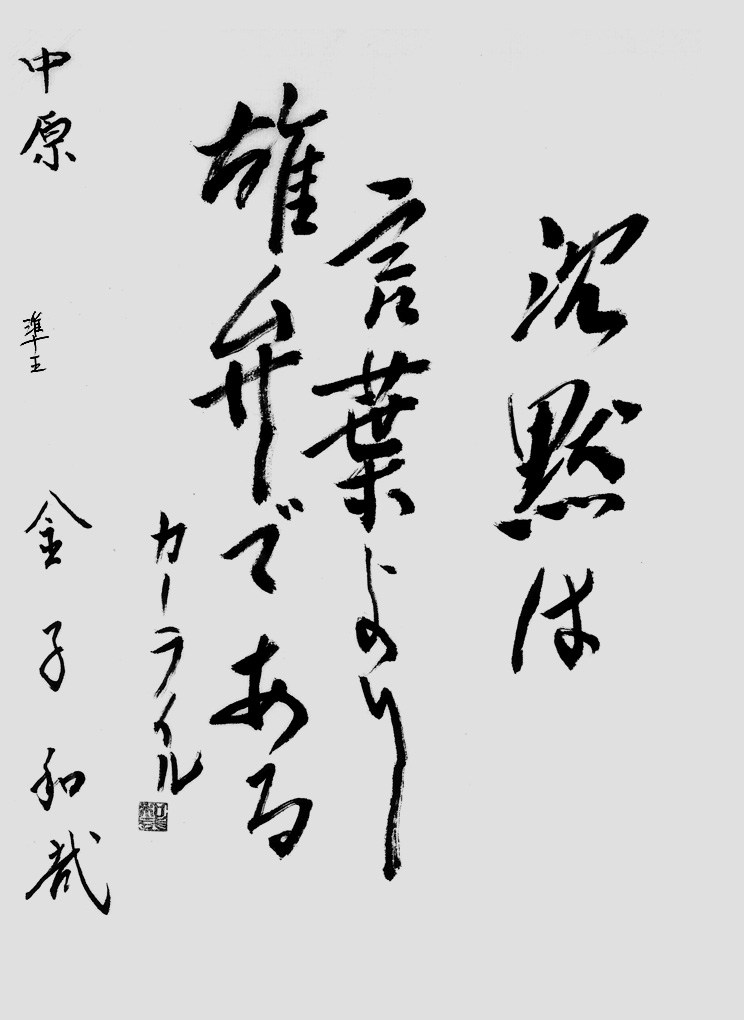 沈黙は
言葉より
雄弁である
カーライル
中原 準王 金子和哉